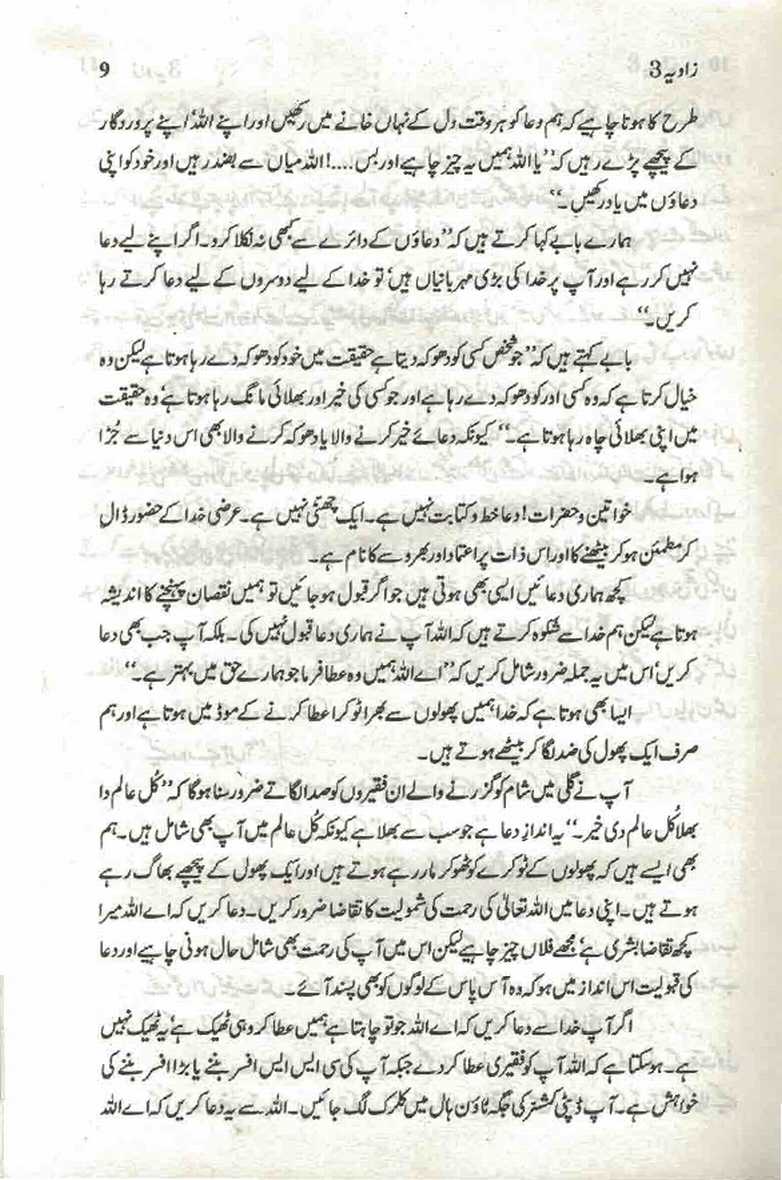 زاویہ 3 9
طرح کا ہونا چاہیے کہ ہم دعا کو ہر وقت دل کے نہاں خانے میں رکھیں اور اپنے اللہ' اپنے پروردگار
کے پیچھے پڑے رہیں کہ ”یا اللہ ہمیں یہ چیز چاہیے اور بس....! اللہ میاں سے بضد رہیں اور خود کو اپنی
دعاؤں میں یاد رکھیں۔“
ہمارے بابے کہا کرتے ہیں کہ ”دعاؤں کے دائرے سے کبھی نہ نکلا کرو۔ اگر اپنے لیے دعا
نہیں کر رہے اور آپ پر خدا کی بڑی مہربانیاں ہیں' تو خدا کے لیے دوسروں کے لیے دعا کرتے رہا
کریں۔“
بابے کہتے ہیں کہ ”جو شخص کسی کو دھوکہ دیتا ہے حقیقت میں خود کو دھوکہ دے رہا ہوتا ہے لیکن وہ
خیال کرتا ہے کہ وہ کسی اور کو دھوکہ دے رہا ہے اور جو کسی کی خیر اور بھلائی مانگ رہا ہوتا ہے' وہ حقیقت
میں اپنی بھلائی چاہ رہا ہوتا ہے۔“ کیونکہ دعائے خیر کرنے والا یا دھوکہ کرنے والا بھی اس دنیا سے جُڑا
ہوا ہے۔
خواتین و حضرات! دعا خط و کتابت نہیں ہے۔ ایک چھٹی نہیں ہے۔ عرضی خدا کے حضور ڈال
کر مطمئن ہو کر بیٹھنے کا اور اس ذات پر اعتماد اور بھروسے کا نام ہے۔
کچھ ہماری دعائیں ایسی بھی ہوتی ہیں جو اگر قبول ہو جائیں تو ہمیں نقصان پہنچنے کا اندیشہ
ہوتا ہے لیکن ہم خدا سے شکوہ کرتے ہیں کہ اللہ آپ نے ہماری دعا قبول نہیں کی۔ بلکہ آپ جب بھی دعا
کریں' اس میں یہ جملہ ضرور شامل کریں کہ ”اے اللہ ہمیں وہ عطا فرما جو ہمارے حق میں بہتر ہے۔“
ایسا بھی ہوتا ہے کہ خدا ہمیں پھولوں سے بھرا ٹوکرا عطا کرنے کے موڈ میں ہوتا ہے اور ہم
صرف ایک پھول کی ضد لگا کر بیٹھے ہوتے ہیں۔
آپ نے گلی میں شام کو گزرنے والے ان فقیروں کو صدا لگاتے ضرور سنا ہوگا کہ ”کُل عالم دا
بھلا کُل عالم دی خیر۔“ یہ اندازِ دعا ہے جو سب سے بھلا ہے کیونکہ کُل عالم میں آپ بھی شامل ہیں۔ ہم
بھی ایسے ہیں کہ پھولوں کے ٹوکرے کو ٹھوکر مار رہے ہوتے ہیں اور ایک پھول کے پیچھے بھاگ رہے
ہوتے ہیں۔ اپنی دعا میں اللہ تعالیٰ کی رحمت کی شمولیت کا تقاضا ضرور کریں۔ دعا کریں کہ اے اللہ میرا
کچھ تقاضا بشری ہے' مجھے فلاں چیز چاہیے لیکن اس میں آپ کی رحمت بھی شامل حال ہونی چاہیے اور دعا
کی قبولیت اس انداز میں ہو کہ وہ آس پاس کے لوگوں کو بھی پسند آئے۔
اگر آپ خدا سے دعا کریں کہ اے اللہ جو تو چاہتا ہے ہمیں عطا کر وہی ٹھیک ہے' یہ ٹھیک نہیں
ہے۔ ہو سکتا ہے کہ اللہ آپ کو فقیری عطا کر دے جبکہ آپ کی سی ایس ایس افسر بننے یا بڑا افسر بننے کی
خواہش ہے۔ آپ ڈپٹی کمشنر کی جگہ ٹاؤن ہال میں کلرک لگ جائیں۔ اللہ سے یہ دعا کریں کہ اے اللہ